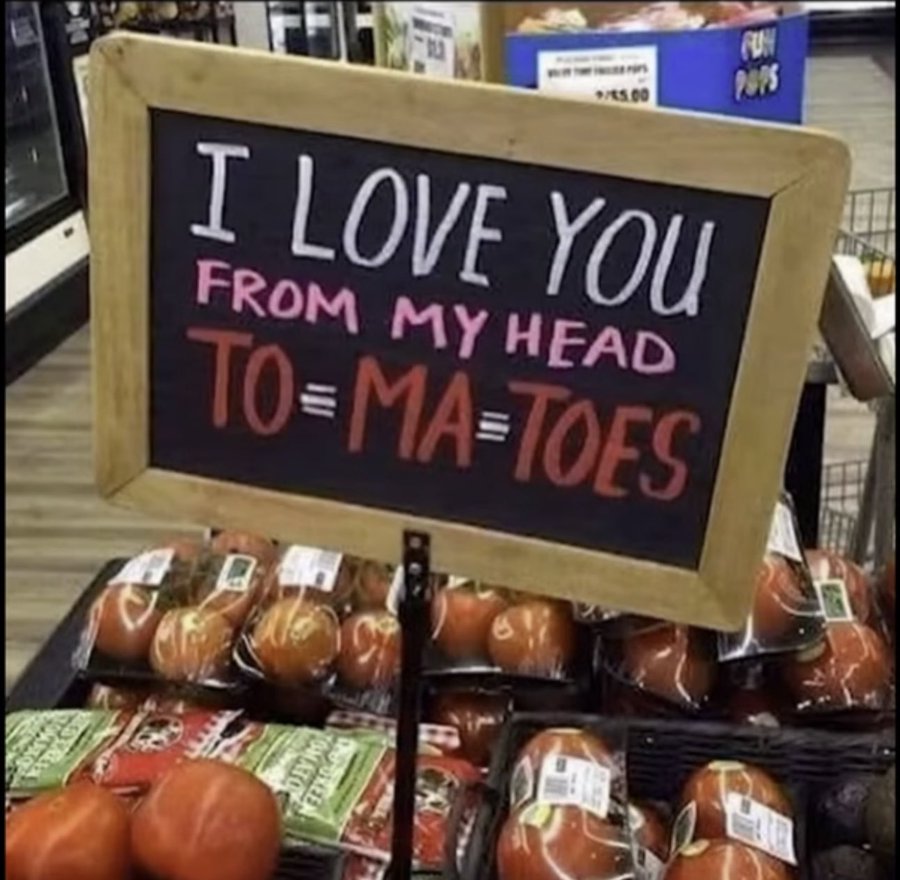 I LOVE YOU
FROM MY HEAD
TO=MA=TOES
FUN
POPS
2/$5.00